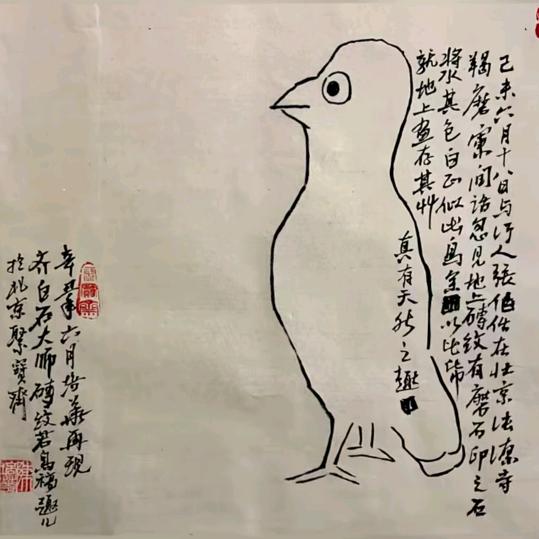 己未六月十八日与门人張伯任在北京法源寺
羯磨寮間話忽見地上磚紋有磨石印之石
浆其色白正似此鳥余以此帋
就地上畫存其艸
真有天然之趣
辛丑年六月培義再現
齐白石大师磚紋若鳥稿趣儿
於北京聚寶齋